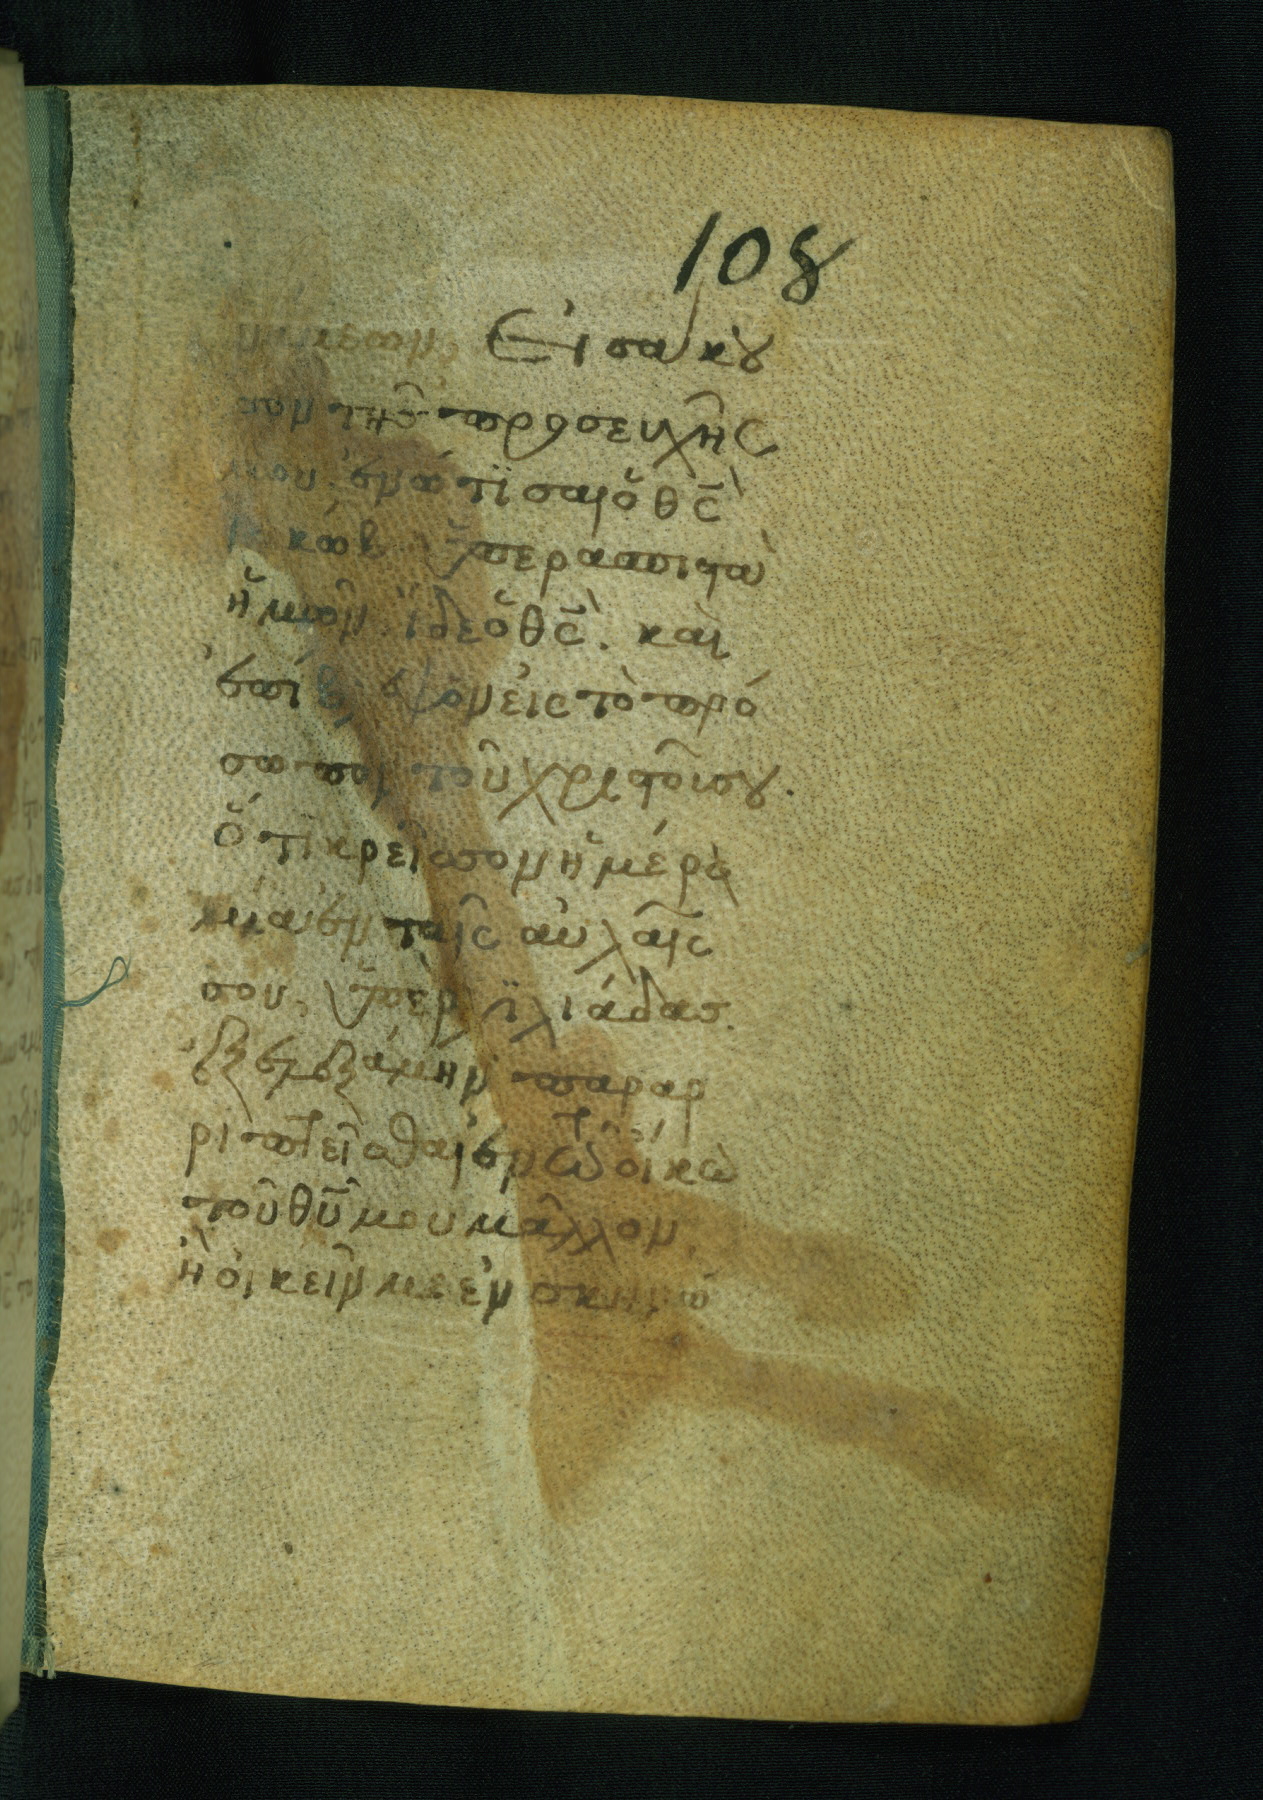 108
Εἰσάκου
σον τῆς προσευχῆς
μου ἐνώτισαι ὁ θς
ἰακώβ ὑπερασπιστὰ
ἡμῶν. ἴδε ὁ θς. καὶ
ἐπίβλεψον εἰς τὸ πρό
σωπον τοῦ χριστοῦ σου.
ὅτι κρείσσων ἡμέρα
μία ἐν ταῖς αὐλαῖς
σου, ὑπὲρ χιλιάδας.
ἐξελεξάμην παραρ
ριπτεῖσθαι ἐν τῶ οἴκω
τοῦ θυ μου μᾶλλον
ἢ οἰκεῖν με ἐν σκηνώ